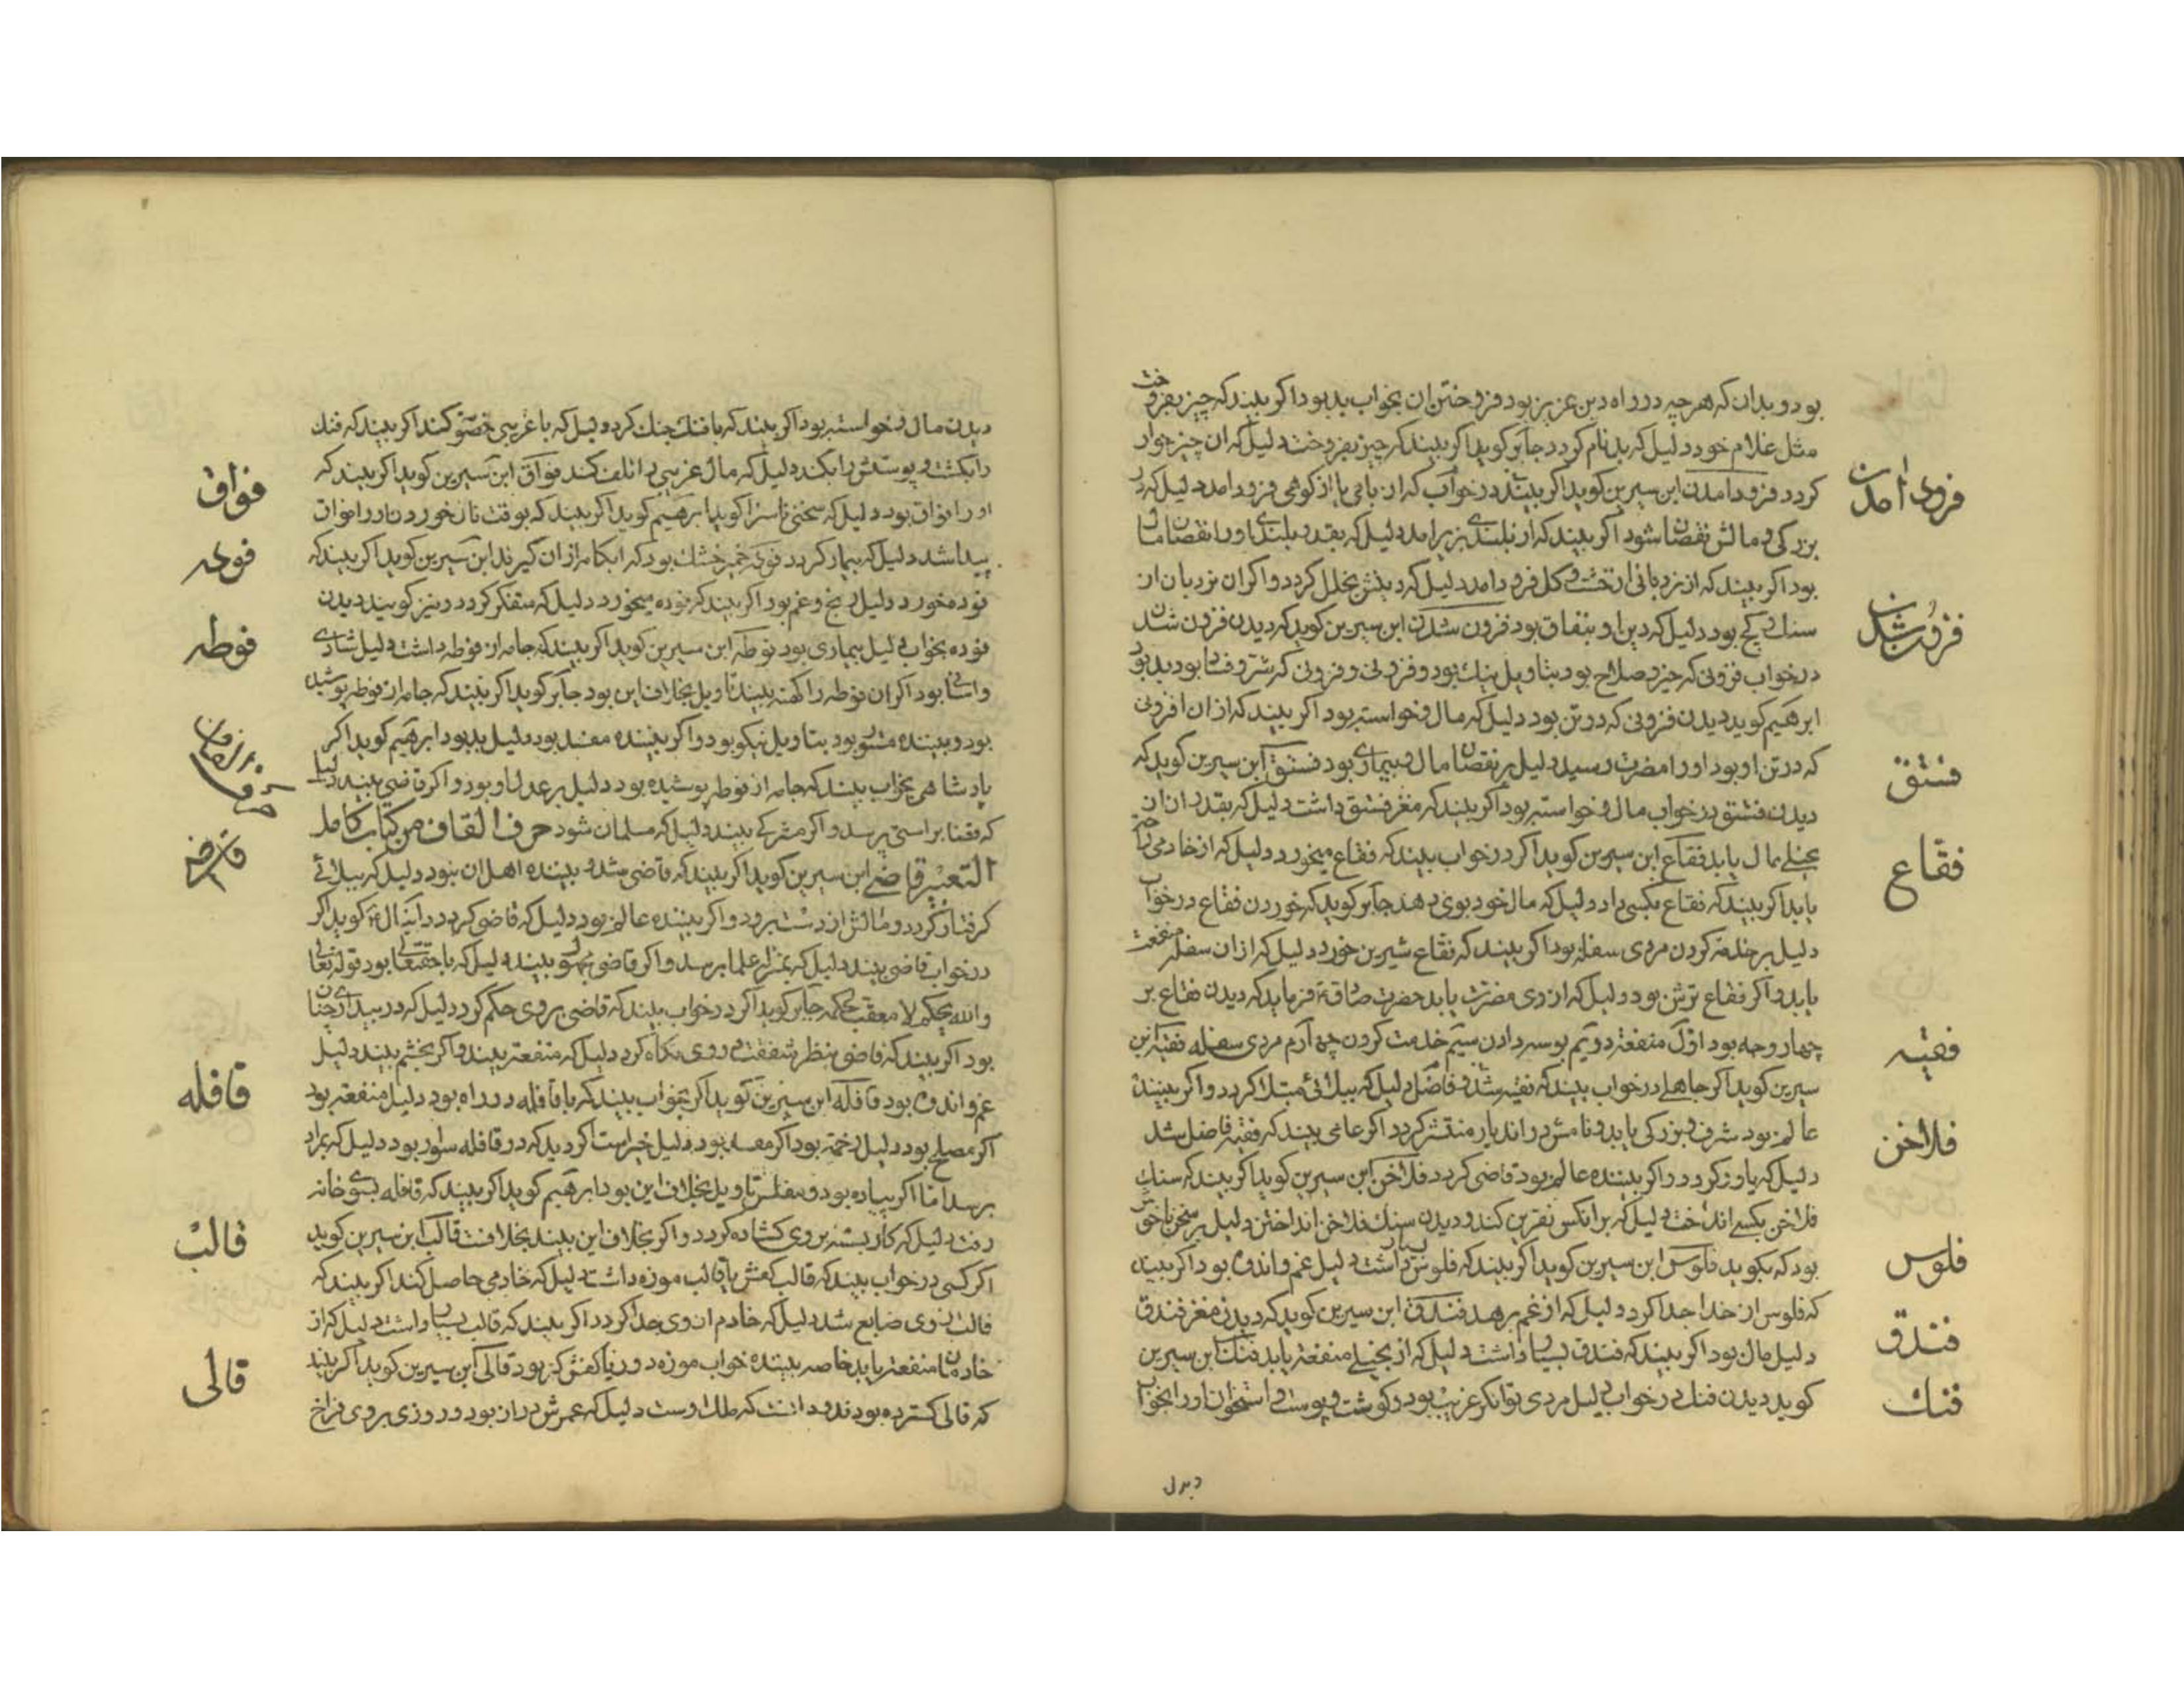 بود و بدان که هرچه در راه دین عزیز بود فروختن ان بخواب بد بود و اکر بیند که چیز بفروخت
مثل غلام خود دلیل که بدنام کردد جابر کوید اکر بیند که چیز بفروخت دلیل که ان چیز خوار
فرود امدن
کردد فرود امدن ابن سیرین کوید اکر بیند در خواب که از بامی یا از کوهی فرود امد دلیل که در
بزرکی و مالش نقصان شود اکر بیند که از بلندی بزیر امد دلیل که بقدر بلندی او را نقصان مال
بود اکر بیند که از نردبانی از خشت و کل فرود امد دلیل که دینش بخلل کردد و اکر ان نردبان از
فزون شدن
سنك و کچ بود دلیل که دین او بنفاق بود فزون شدن ابن سیرین کوید که دیدن فزون شدن
در خواب فزونی که خیر و صلاح بود بتاویل نیك بود و فزونی که شر و فساد بود بد بود
ابرهیم کوید دیدن فزونی که در تن بود دلیل که مال و خواسته بود اکر بیند که از ان افزونی
فستق
که در تن او بود او را مضرت رسید دلیل بر نقصان مال و بیماری بود فستق ابن سیرین کوید که
دیدن فستق در خواب مال و خواسته بود اکر بیند که مغز فستق داشت دلیل که بقدر ان از
فقاع
بخیلی مال یابد فقاع ابن سیرین کوید اکر در خواب بیند که فقاع میخورد دلیل که از خادمی
یابد اکر بیند که فقاع بکسی داد دلیل که مال خود بوی دهد جابر کوید که خوردن فقاع در خواب
دلیل بر خدمت کردن مردی سفله بود اکر بیند که فقاع شیرین خورد دلیل که از ان سفله منفعت
یابد و اکر فقاع ترش بود دلیل که از وی مضرت یابد حضرت صادق فرماید که دیدن فقاع بر
فقیه
چهار وجه بود اول منفعت دویم بوسه دادن سیم خدمت کردن چهارم مردی سفله فقیه ابن
سیرین کوید اکر جاهلی در خواب بیند که فقیه شد و فاضل دلیل که ببلائی مبتلا کردد و اکر بیننده
فلاخن
عالم بود شرف و بزرکی یابد و نامش در اندیار منتشر کردد اکر عامی بیند که فقیه فاضل شد
دلیل که یاور کردد و اکر بیننده عالم بود قاضی کردد فلاخن ابن سیرین کوید اکر بیند که سنك
فلاخن بکسی انداخت دلیل که بر انکس نفرین کند و دیدن سنك فلاخن انداختن دلیل بر سخن ناخوش
فلوس
بود که بکوید فلوس ابن سیرین کوید اکر بیند که فلوس بسیار داشت دلیل غم و اندوه بود اکر بیند
فندق
که فلوس از خدا جدا کرد دلیل که از غم برهد فندق ابن سیرین کوید که دیدن مغز فندق
دلیل مال بود اکر بیند که فندق بسیار داشت دلیل که از بخیلی منفعت یابد فنك ابن سیرین
فنك
کوید دیدن فنك در خواب دلیل مردی توانکر غریب بود و کوشت و پوست و استخوان او را بخواب
دیدن
دیدن مال و خواسته بود اکر بیند که با فنك جنك کرد دلیل که با غریبی خصومت کند اکر بیند که فنك
فواق
را بکشت و پوستش را بکند دلیل که مال غریبی را تلف کند فواق ابن سیرین کوید اکر بیند که
او را فواق بود دلیل که سخنی ناسزا کوید ابرهیم کوید اکر بیند که بوقت نان خوردن او را فواق
فوده
پیدا شد دلیل که بیمار کردد فوده خمیر خشك بود که ابکامه از ان کیرند ابن سیرین کوید اکر بیند که
فوده خورد دلیل رنج و غم بود اکر بیند که فوده میخورد دلیل که متفکر کردد و نیز کویند دیدن
فوطه
فوده بخواب دلیل بیماری بود فوطه ابن سیرین کوید اکر بیند که جامه از فوطه داشت دلیل شادی
و اسانی بود اکر ان فوطه را کهنه بیند تاویل بخلاف این بود جابر کوید اکر بیند که جامه از فوطه پوشیده
بود و بیننده مستور بود بتاویل نیکو بود و اکر بیننده مفسد بود دلیل بد بود ابرهیم کوید اکر
حرف القاف
پادشاهی بخواب بیند که جامه از فوطه پوشیده بود دلیل بر عدل او بود و اکر قاضی بیند دلیل
که قضا براستی پرسد و اکر مشرکی بیند دلیل که مسلمان شود حرف القاف من کتاب کامل
قاضی
التعبیر قاضی ابن سیرین کوید اکر بیند که قاضی شد و بیننده اهل ان نبود دلیل که ببلائی
کرفتار کردد و مالش از دست برود و اکر بیننده عالم بود دلیل که قاضی کردد دانیال کوید اکر
در خواب قاضی بیند دلیل که بمنزله علما برسد و اکر قاضی مجهول بیند دلیل که با حقتعالی بود قوله تعالی
والله یحکم لا معقب لحکمه جابر کوید اکر در خواب بیند که قاضی بر وی حکم کرد دلیل که در بیداری چنان
بود اکر بیند که قاضی بنظر شفقت در وی نکاه کرد دلیل که منفعت بیند و اکر بخشم بیند دلیل
قافله
غم و اندوه بود قافله ابن سیرین کوید اکر بخواب بیند که با قافله در راه بود دلیل منفعت بود
اکر مصلح بود دلیل رحمت بود اکر مفسد بود دلیل خیر است اکر دید که در قافله سوار بود دلیل که بمراد
برسد اما اکر پیاده بود و مفلس تاویل بخلاف این بود ابرهیم کوید اکر بیند که قافله بسوی خانه
قالب
رفت دلیل که کار بسته بر وی کشاده کردد و اکر بخلاف این بیند بخلافست قالب ابن سیرین کوید
اکر کسی در خواب بیند که قالب کفش یا قالب موزه داشت دلیل که خادمی حاصل کند اکر بیند که
قالب از وی ضایع شد دلیل که خادم از وی جدا کردد اکر بیند که قالب بسیار داشت دلیل که از
قالی
خادمان منفعت یابد خاصه بیننده خواب موزه دوز یا کفش کر بود قالی ابن سیرین کوید اکر بیند
که قالی کسترده بود و دانست که ملك اوست دلیل که عمرش دراز بود و روزی بر وی فراخ